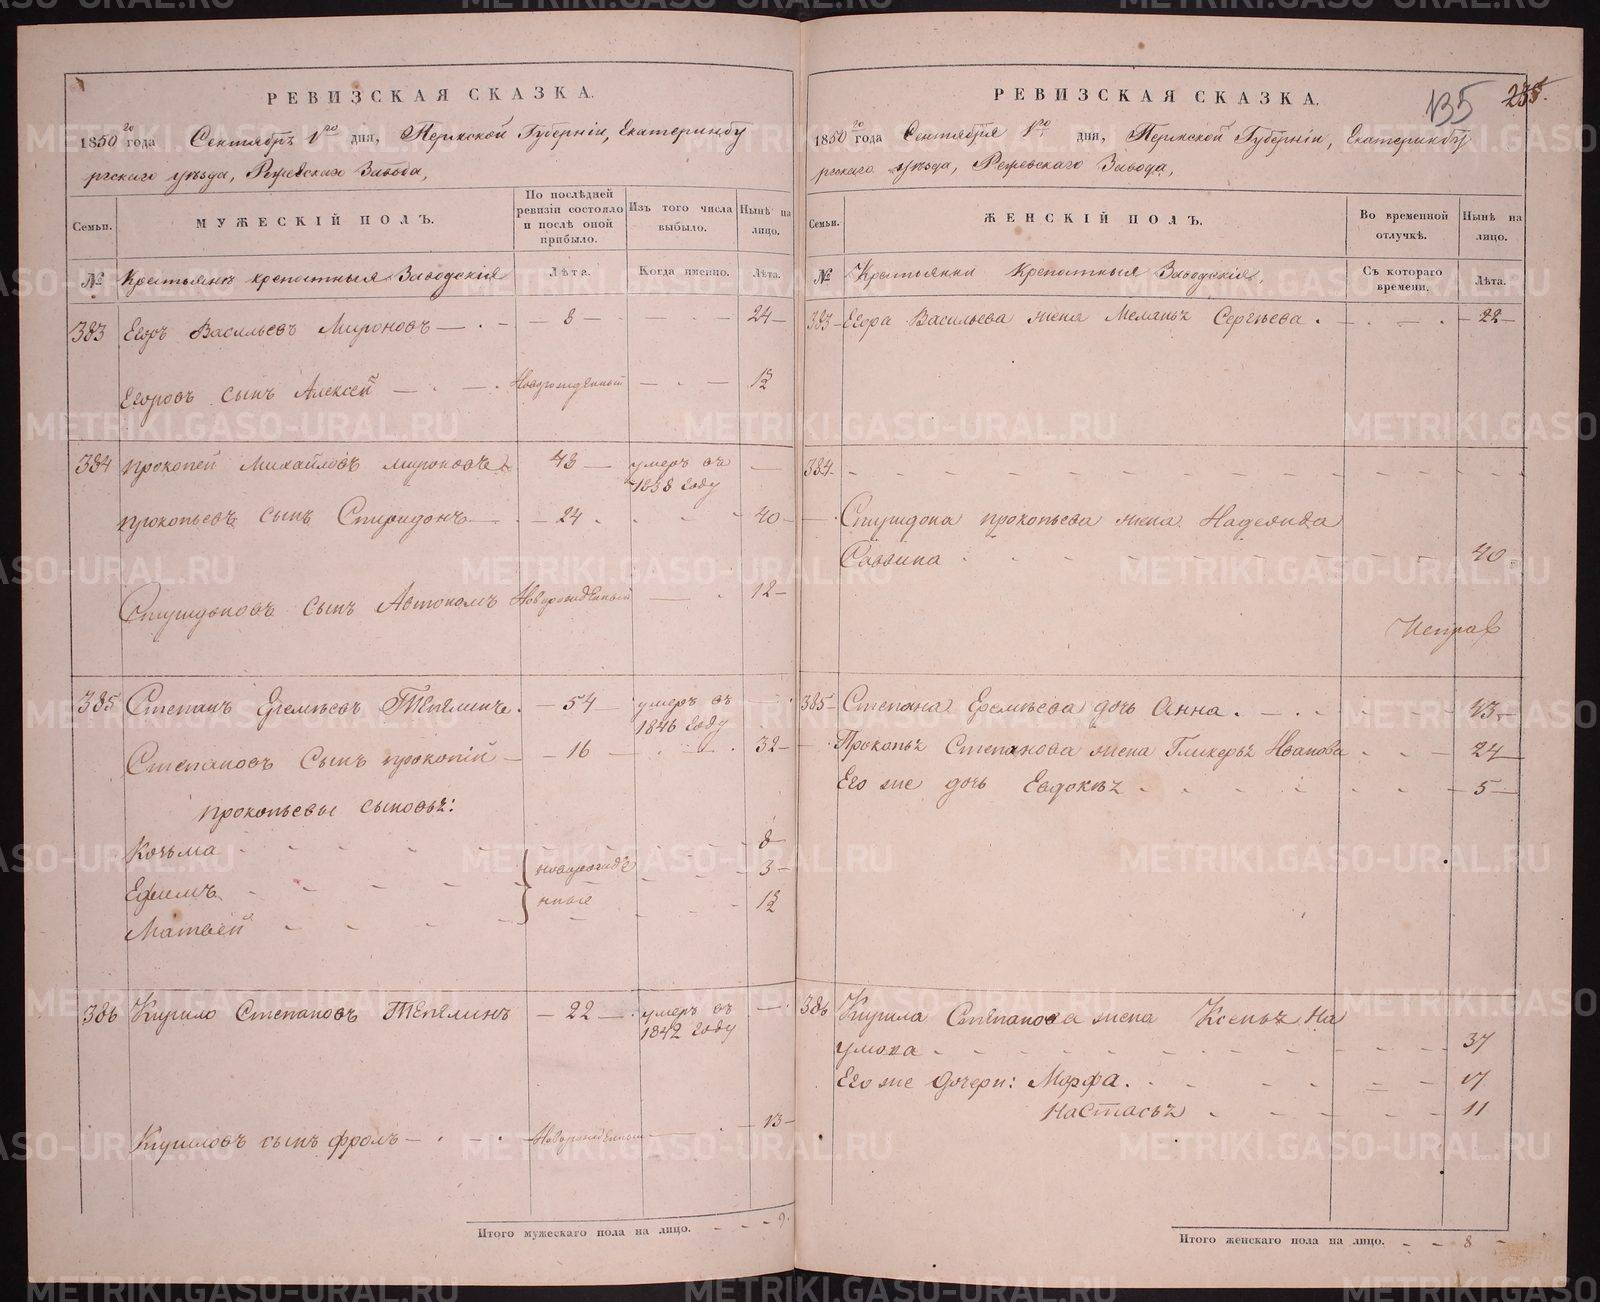 РЕВИЗСКАЯ СКАЗКА.
1850 го года Сентября 1го дня, Пермской Губерніи, Екатеринбу
ргскаго уѣзда, Режевскаго Завода,
Семьи.
МУЖЕСКІЙ ПОЛЪ.
По послѣдней ревизіи состояло и послѣ оной прибыло.
Изъ того числа выбыло.
Нынѣ на лицо.
№ Крестьянъ крепостныя Заводскія
Лѣта. Когда именно. Лѣта.
383 Егоръ Васильевъ Мироновъ — 8 — 24
Егоровъ сынъ Алексей — Новорожденный — 1/2
384 Прокопей Михайловъ Мироновъ 43 — умеръ въ
1838 году
Прокопьевъ сынъ Спиридонъ — 24 40
Спиридоновъ сынъ Автономъ Новорожденный — 12
385 Степанъ Еремѣевъ Тепелинъ. — 54 умеръ въ
1846 году
Степановъ Сынъ прокопій — 16 — 32
прокопьевы сыновья:
Козьма 8
Ефимъ новорожде 3
Матвей нные 1/2
386 Кирило Степановъ Тепелинъ — 22 — умеръ въ
1842 году
Кириловъ сынъ фролъ — Новорожденной 13
Итого мужескаго пола на лицо. 9.
РЕВИЗСКАЯ СКАЗКА.
135 235.
1850 го года Сентября 1го дня, Пермской Губерніи, Екатеринбу
ргскаго уѣзда, Режевскаго Завода,
Семьи.
ЖЕНСКІЙ ПОЛЪ.
Во временной отлучкѣ.
Нынѣ на лицо.
№ Крестьянки Крепостныя Заводскія,
Съ котораго времени. Лѣта.
383 Егора Васильева жена Меланья Сергѣева. 22
384
Спиридона прокопьева жена Надежда
Саввина 40
385 Степана Еремѣева дочь Анна. 43
Прокопья Степанова жена Гликерья Иванова 24
Его же дочь Евдокѣя 5
386 Кирила Степанова жена Ксенья На
умова 37
Его же дочери: Марфа. 17
Настасья 11
Итого женскаго пола на лицо. 8
METRIKI.GASO-URAL.RU